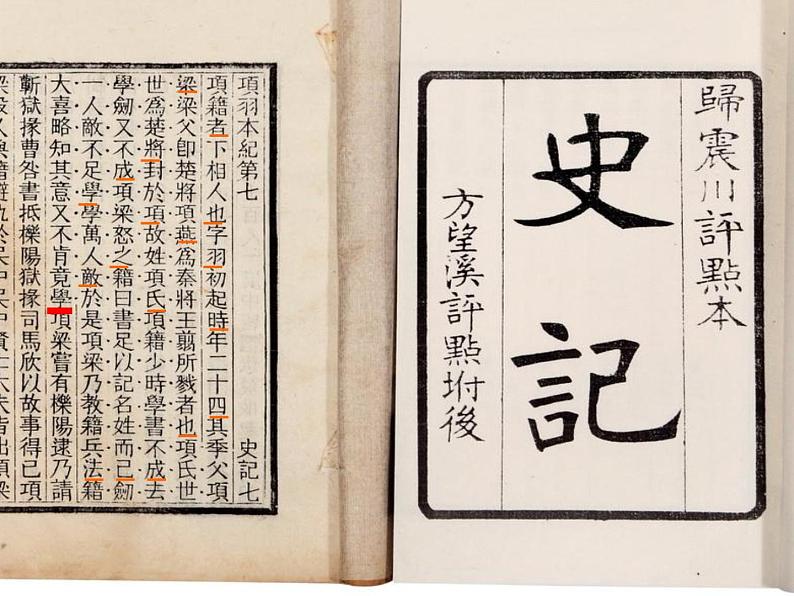 歸震川評點本
史記
方望溪評點坿後
項羽本紀第七 史記七
項籍者下相人也字羽初起時年二十四其季父項
梁梁父卽楚將項燕爲秦將王翦所戮者也項氏世
世爲楚將封於項故姓項氏項籍少時學書不成去
學劒又不成項梁怒之籍曰書足以記名姓而已劒
一人敵不足學學萬人敵於是項梁乃教籍兵法籍
大喜略知其意又不肯竟學項梁嘗有櫟陽逮乃請
蘄獄掾曹咎書抵櫟陽獄掾司馬欣以故事得已項